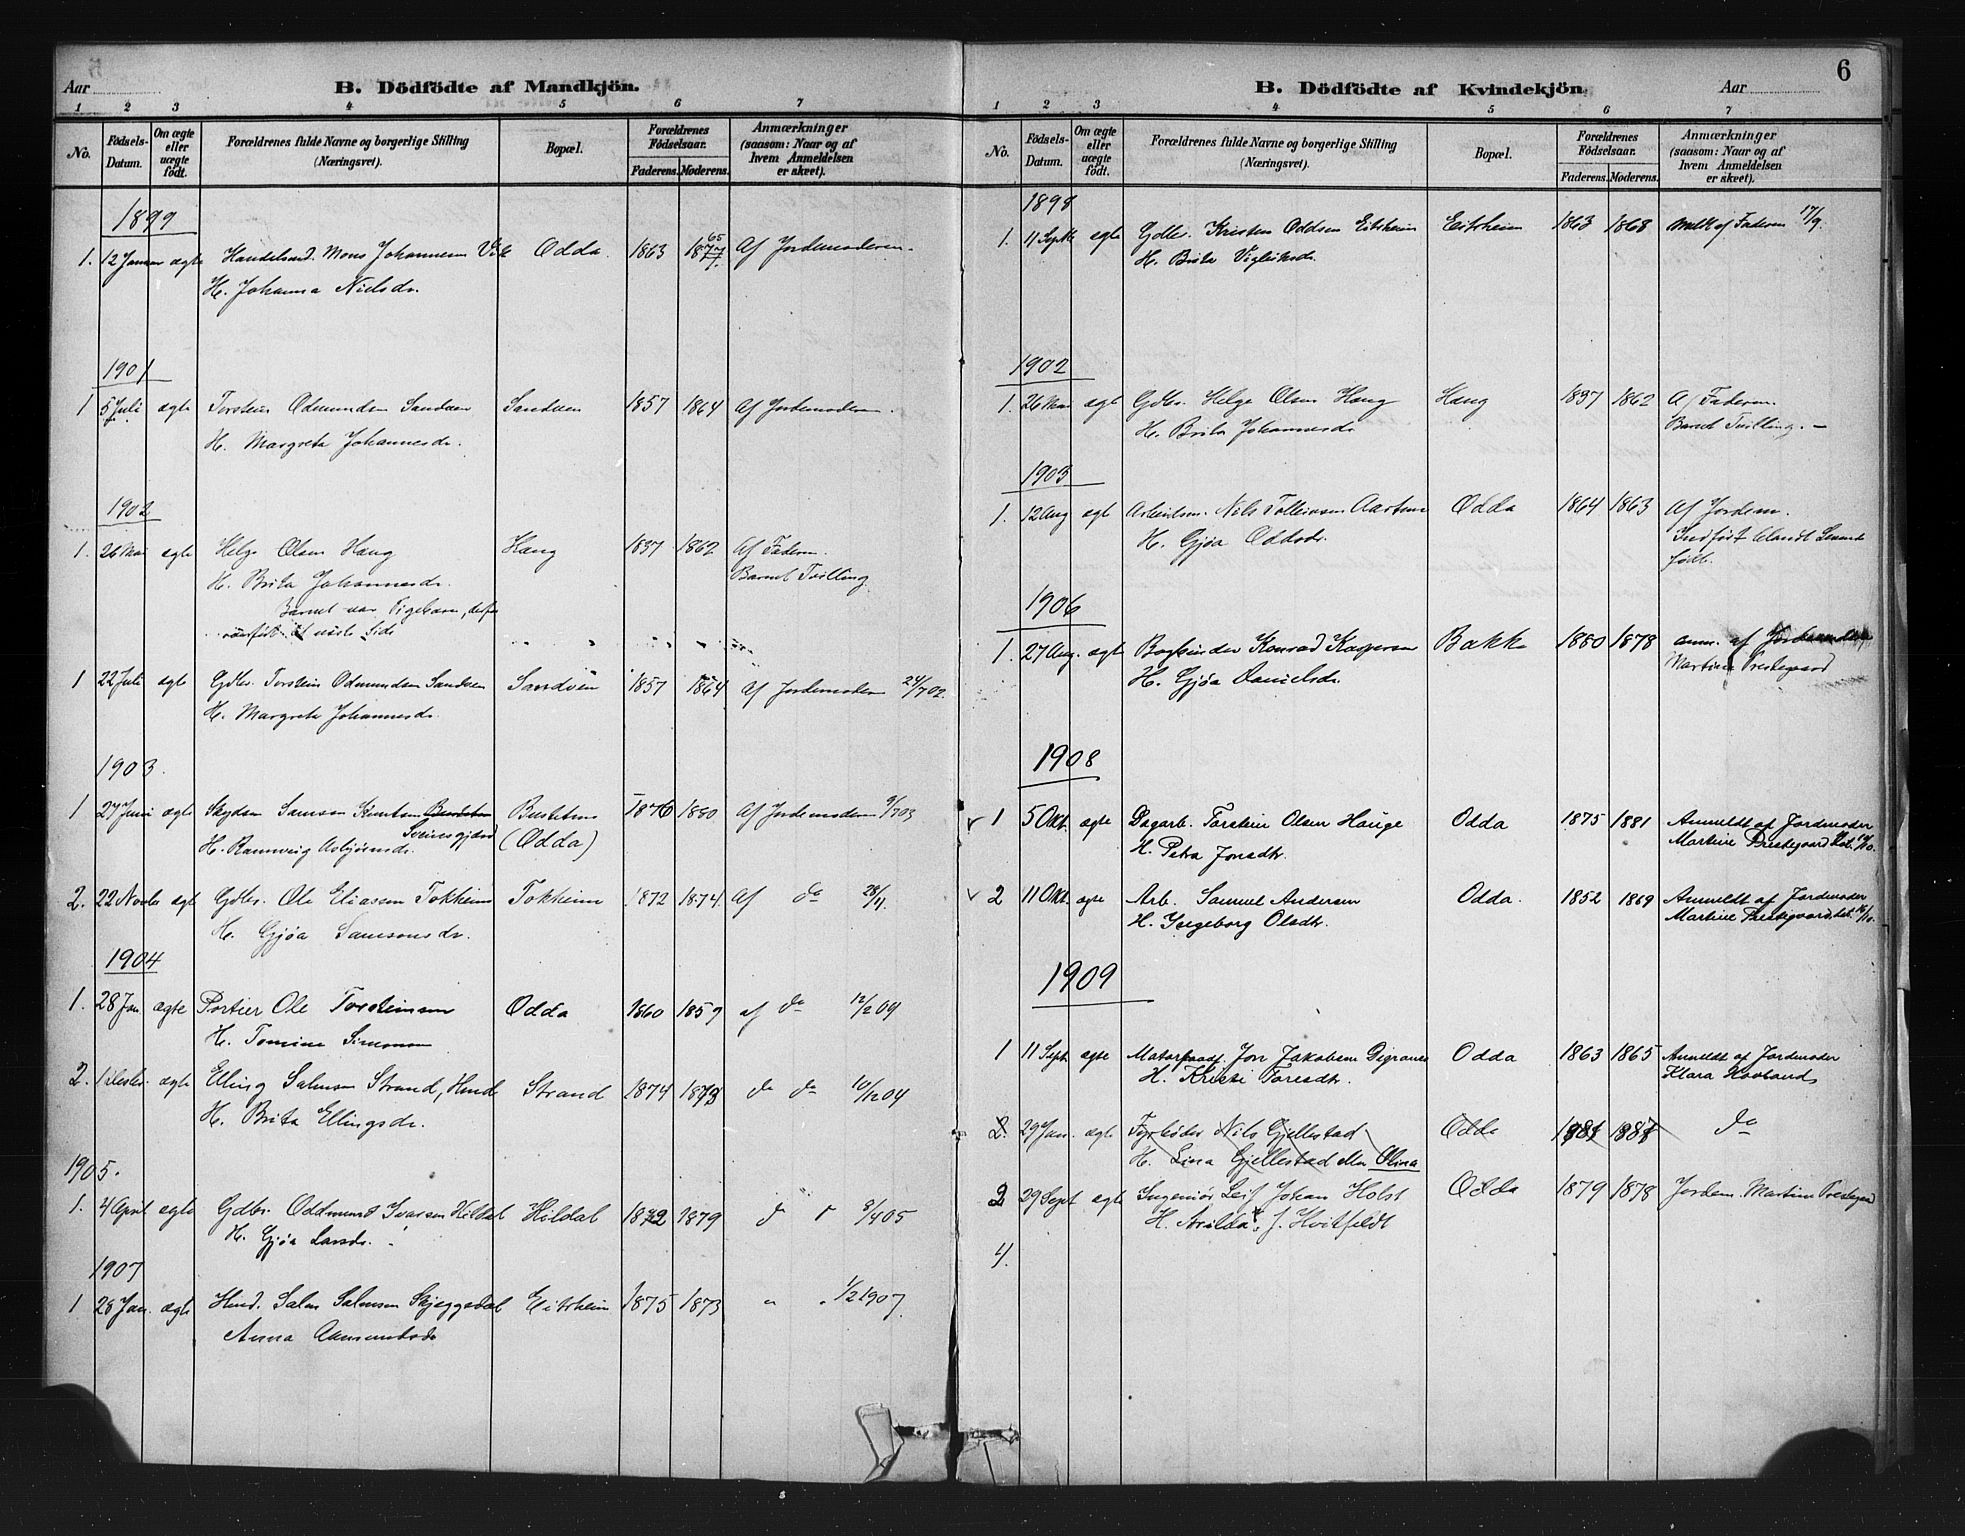 Aar
B. Dödfödte af Mandkjön.
1 2 3 4 5 6 7
No.
Födsels-Datum.
Om ægte eller uægte født.
Forældrenes fulde Navne og borgerlige Stilling (Næringsvei).
Bopæl.
Forældrenes Födselsaar.
Faderens. Moderens.
Anmærkninger (saasom: Naar og af hvem Anmeldelsen er skeet).
1899
1. 12 Januar ægte Handelsmd. Mons Johannesen Vik Odda. 1863 1877 65 Af Jordemoderen.
H. Johanna Nielsdr.
1901
1 5 Juli ægte Torstein Odmundsen Sandven Sandven 1857 1864 Af Jordemoderen.
H. Margreta Johannesdr.
1902
1. 26 Mai ægte Helge Olsen Haug Haug 1837 1862 Af Faderen.
H. Brita Johannesdr. Barnet Tvilling.
Barnet var Pigebarn, derfor
overført til næste Side
1 22 Juli ægte Gdbr. Torstein Odmundsen Sandven Sandven 1857 1864 Af Jordemoderen 24/7 02.
H. Margreta Johannesdr.
1903.
1 27 Juni ægte Skydsm Samson Knutsen Bustetun 1876 1880 Af Jordemoderen 9/7 03
H. Rannveig Asbjörnsdr. (Odda)
2. 22 Novbr ægte Gdbr. Ole Eliassen Tokheim Tokheim 1872 1874 Af do 28/11.
H. Gjøa Samsonsdr.
1904
1. 28 Jan. ægte Portier Ole Torsteinsen Odda 1860 1859 af do 12/2 04
H. Tomine Simonsen
2. ægte Elling Salmon Strand, Hmd Strand 1874 1873 do do 10/12 04
H. Brita Ellingsdr.
1905.
1. 4 April ægte Gdbr Oddmund Ivarsen Hildal Hildal 1872 1879 d 8/4 05
H. Gjøa Larsdr.
1907
1 28 Jan. ægte Hmd. Salm Salmsen Skjeggedal Eitrheim 1875 1873 " " 1/2 1907.
Anna
B. Dödfödte af Kvindekjön.
Aar
6
1 2 3 4 5 6 7
No.
Födsels-Datum.
Om ægte eller uægte födt.
Forældrenes fulde Navne og borgerlige Stilling (Næringsvei).
Bopæl.
Forældrenes Födselsaar.
Faderens. Moderens.
Anmærkninger (saasom: Naar og af hvem Anmeldelsen er skeet).
1898
1. 11 Septbr ægte Gdbr. Kristen Oddsen Eitrheim Eitrheim 1863 1868 Anm. af Faderen 17/9.
H. Brita Vigleiksdr.
1902
1. 26 Mai ægte Gdbr. Helge Olsen Haug Haug 1837 1862 Af Faderen.
H. Brita Johannesdr. Barnet Tvilling. –
1903
1. 12 Aug ægte Arbeidsm. Nils Tolleivsen Aartun Odda 1864 1863 Af Jordem.
H. Gjøa Oddsdr. Indført blandt Levende
fødte.
1906
1. 27 Aug. ægte Bogbinder Konrad Kaspersen Bakke 1880 1878 anm. af Jordemoder
H. Gjøa Danielsdr. Martine Prestegaard
1908
1 5 Okt. ægte Dagarb. Torstein Olsen Hauge Odda 1875 1881 Anmeldt af Jordmoder
H. Petra Jonsdtr. Martine Prestegaard
2 11 Okt. ægte Arb. Samuel Andersen Odda. 1852 1869 Anmeldt af Jordmoder
H. Ingeborg Olsdtr. Martine Prestegaard
1909
1 11 Sept. ægte Jon Jakobsen Digranes Odda 1863 1865 Anmeldt af Jordmoder
H. Kristi Toresdtr. Klara Hovland
2. 29 Jan. ægte Fyrbøder Nils Gjellestad Odda 1881 1887 do
H. Lina Gjellestad eller Olina
2 29 Sept ægte Ingeniør Leif Johan Holst Odda 1879 1878 Jordem. Martine Prestegaard
H. Arilda J. Hvitfeldt
4.